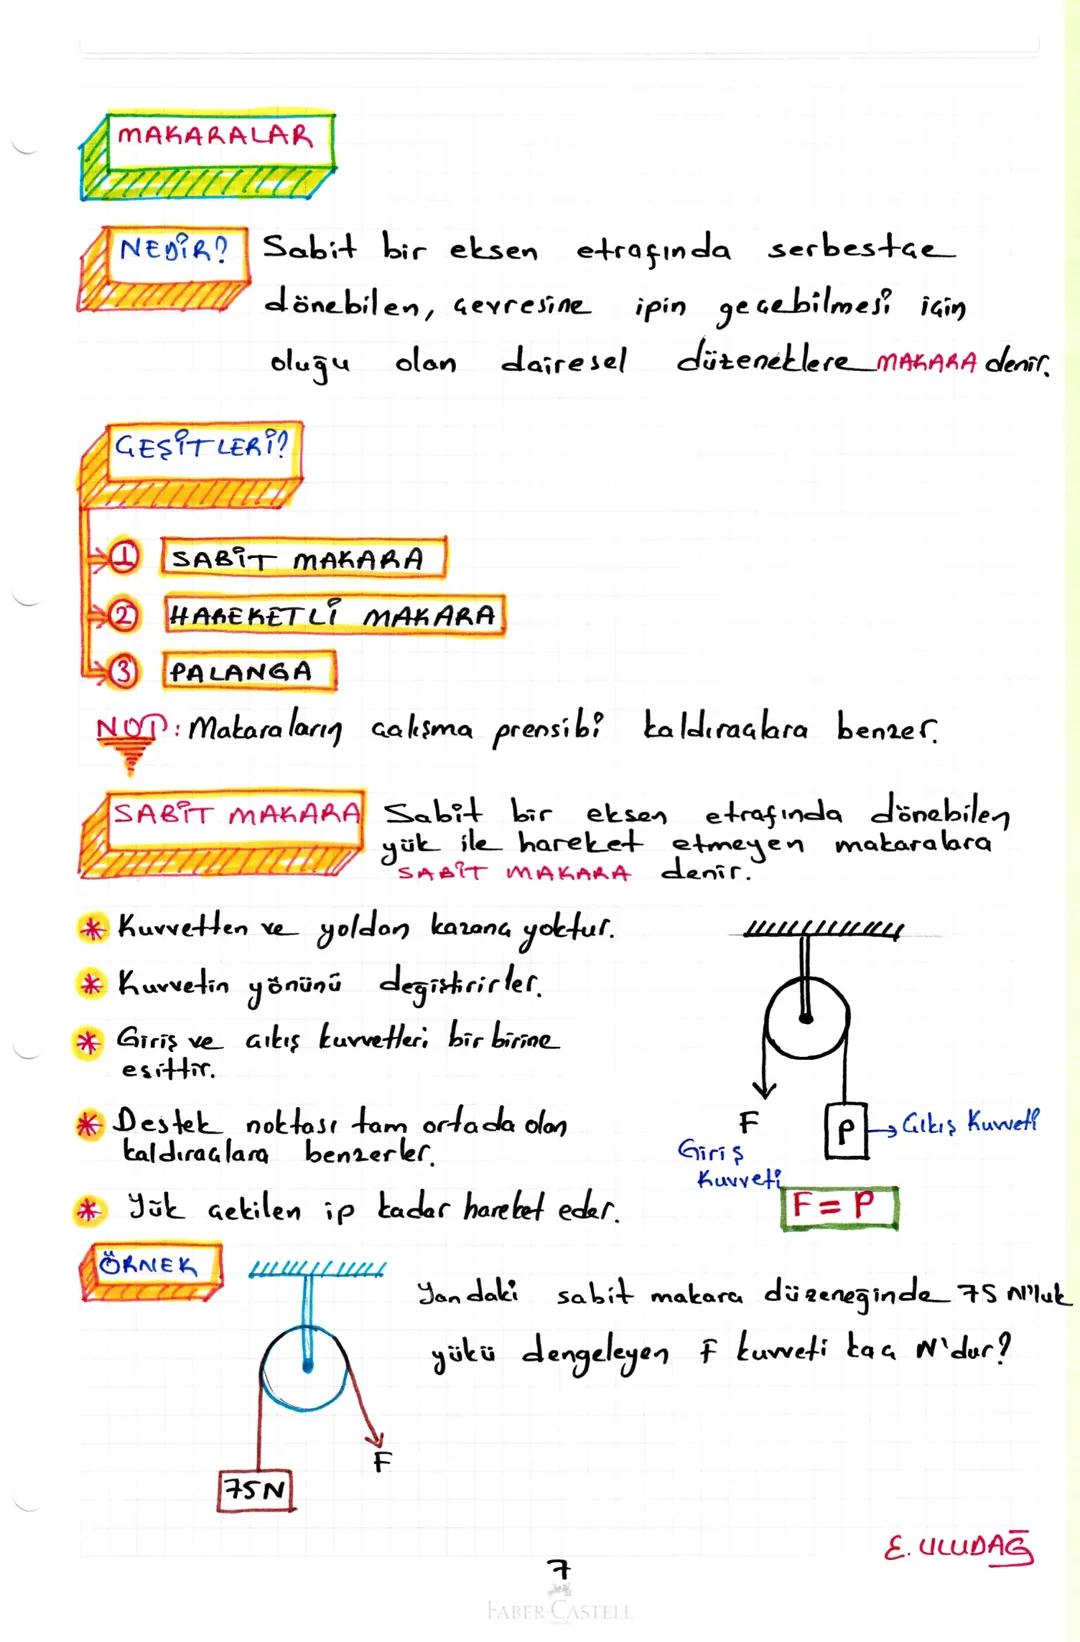 MAKARALAR
NEDİR? Sabit bir eksen etrafında serbestçe
dönebilen, çevresine ipin geçebilmesi için
oluğu olan dairesel düzeneklere MAKARA denir.
ÇEŞİTLERİ?
1 SABİT MAKARA
2 HAREKETLİ MAKARA
3 PALANGA
NOT: Makaraların çalışma prensibi kaldıraçlara benzer.
SABİT MAKARA Sabit bir eksen etrafında dönebilen
yük ile hareket etmeyen makaralara
SABİT MAKARA denir.
* Kuvvetten ve yoldan kazanç yoktur.
* Kuvvetin yönünü değiştirirler.
* Giriş ve çıkış kuvvetleri bir birine
eşittir.
* Destek noktası tam ortada olan
kaldıraçlara benzerler.
* Yük çekilen ip kadar hareket eder.
F
Giriş
Kuvveti
P → Çıkış Kuvveti
F = P
ÖRNEK
Yandaki sabit makara düzeneğinde 75 N'luk
yükü dengeleyen F kuvveti kaç N'dur?
F
75N
E. ULUDAĞ
7
FABER-CASTELL